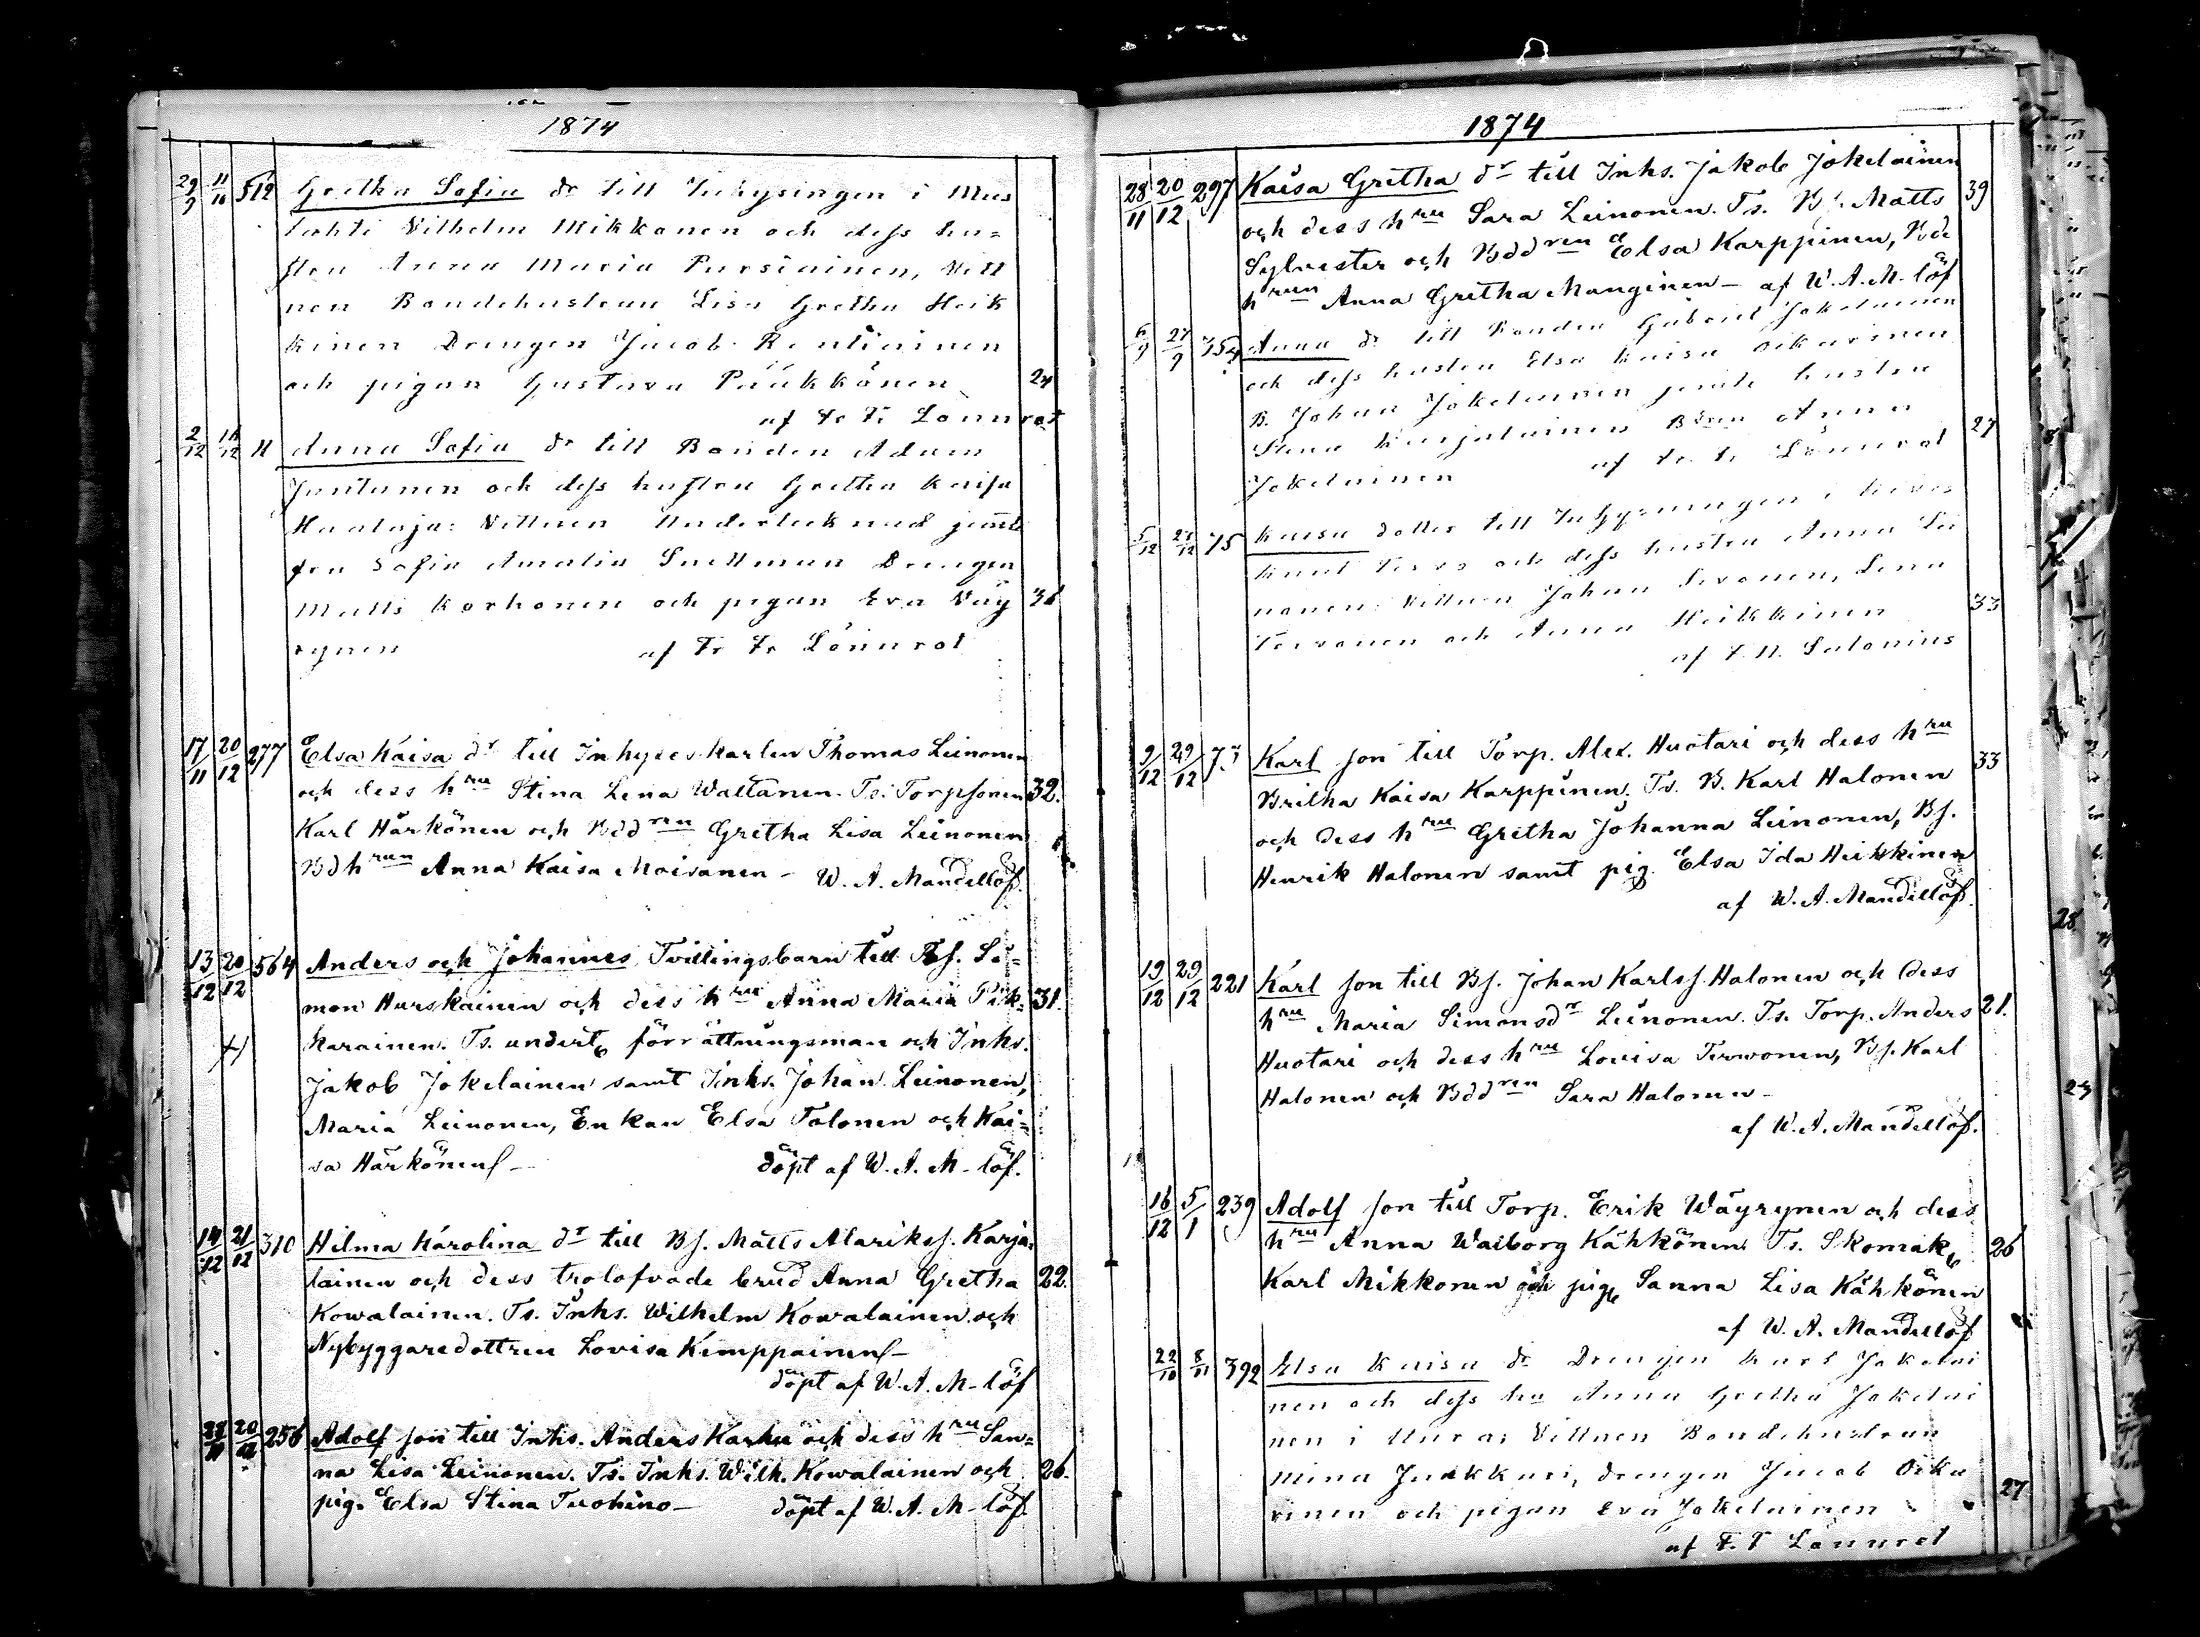 1874
29/9 11/10 512 Gretha Sofia dr till Inhysingen i Mus
lahti Vilhelm Mikkonen och dess hu=
stru Anna Maria Pursiainen, Vitt
nen Bondehustrun Lisa Gretha Heik
kinen Drengen Jacob
och pigan Gustava Pääkkönen 24
af Fr Fr Lönnrot
2/12 12 11 Anna Sofia dr till Bonden Adam
Juntunen och dess hustru Gretha Kaisa
Haataja: Vittnen Undertecknad jemte
fru Sofia Amalia Snellman Drengen
Matts Korhonen och pigan Eva Väy 36
rynen af Fr Fr Lönnrot
17/11 20/12 277 Elsa Kaisa dr till Inhyseskarlen Thomas Leinonen
och dess hru Stina Lena Waltanen. Ts. Torpsonen 32.
Karl Härkönen och Bddren Gretha Lisa Leinonen
Bdhrun Anna Kaisa Moisanen – W. A. Mandellöf.
13/12 20/12 564 Anders och Johannes Tvillingsbarn till Bs. Si=
mon Hurskainen och dess hru Anna Maria Pik= 31.
karainen. Ts. undert förrättningsman och Inhs.
Jakob Jokelainen samt Inhs. Johan Leinonen,
Maria Leinonen, Enkan Elsa Tolonen och Kai=
sa Härkönen – döpt af W. A. M–löf.
14/12 21/12 310 Hilma Karolina dr till Bs. Matts Alarikss. Karja=
lainen och dess trolofvade brud Anna Gretha 22.
Kowalainen. Ts. Inhs. Wilhelm Kowalainen och
Nybyggaredottren Lovisa Kemppainen –
döpt af W. A. M–löf
256 Adolf son till Inhs. Anders Karhu och dess hru San=
na Lisa Leinonen. Ts. Inhs. Wilh. Kowalainen och 26.
pig. Elsa Stina Tuohino – döpt af W. A. M–löf.
1874
28/11 20/12 297 Kaisa Gretha dr till Inhs. Jakob Jokelainen
och dess hru Sara Leinonen. Ts. Bs. Matts 39
Sylvester och Bddren Elsa Karppinen, Bde
hrun Anna Gretha Manginen – af W. A. M–löf
6/9 27/9 354 Anna dr till Bonden Gabriel Jokelainen
och dess hustru Elsa Kaisa Oikarinen
B. Johan Jokelainen jemte hustru
Stina Karjalainen Bdren Anna 27
Jokelainen af Fr. Fr Lönnrot
5/12 27/12 75 Kaisa dotter till Inhysingen i
Knut Tervo och dess hustru Anna Lei
nonen: Vittnen Johan Sivonen, Lena
Tervonen och Anna Heikkinen 33
af F. H. Salonius
9/12 29/12 73 Karl son till Torp. Alex. Huotari och dess hru
Britha Kaisa Karppinen. Ts. B. Karl Halonen 33
och dess hru Gretha Johanna Leinonen, Bs.
Henrik Halonen samt pig. Elsa Ida Heikkinen
af W. A. Mandellöf.
19/12 29/12 221 Karl son till Bs. Johan Karlss. Halonen och dess
hru Maria Simonsdr Leinonen. Ts. Torp. Anders 21.
Huotari och dess hru Lovisa Terwonen, Bs. Karl
Halonen och Bddren Sara Halonen –
af W. A. Mandellöf.
16/12 5/1 239 Adolf son till Torp. Erik Wäyrynen och dess
hru Anna Walborg Kähkönen. Ts. Skomak. 26
Karl Mikkonen och pig. Sanna Lisa Kähkönen
af W. A. Mandellöf
22/10 8/11 392 Elsa Kaisa dr Drengen Karl Jokelai
nen och dess hu Anna Gretha Jokelai
nen i Vittnen Bondehustrun
Mina Juakkuri, drengen Jacob Oika
rinen och pigan Eva Jokelainen 27
af F. F Lönnrot